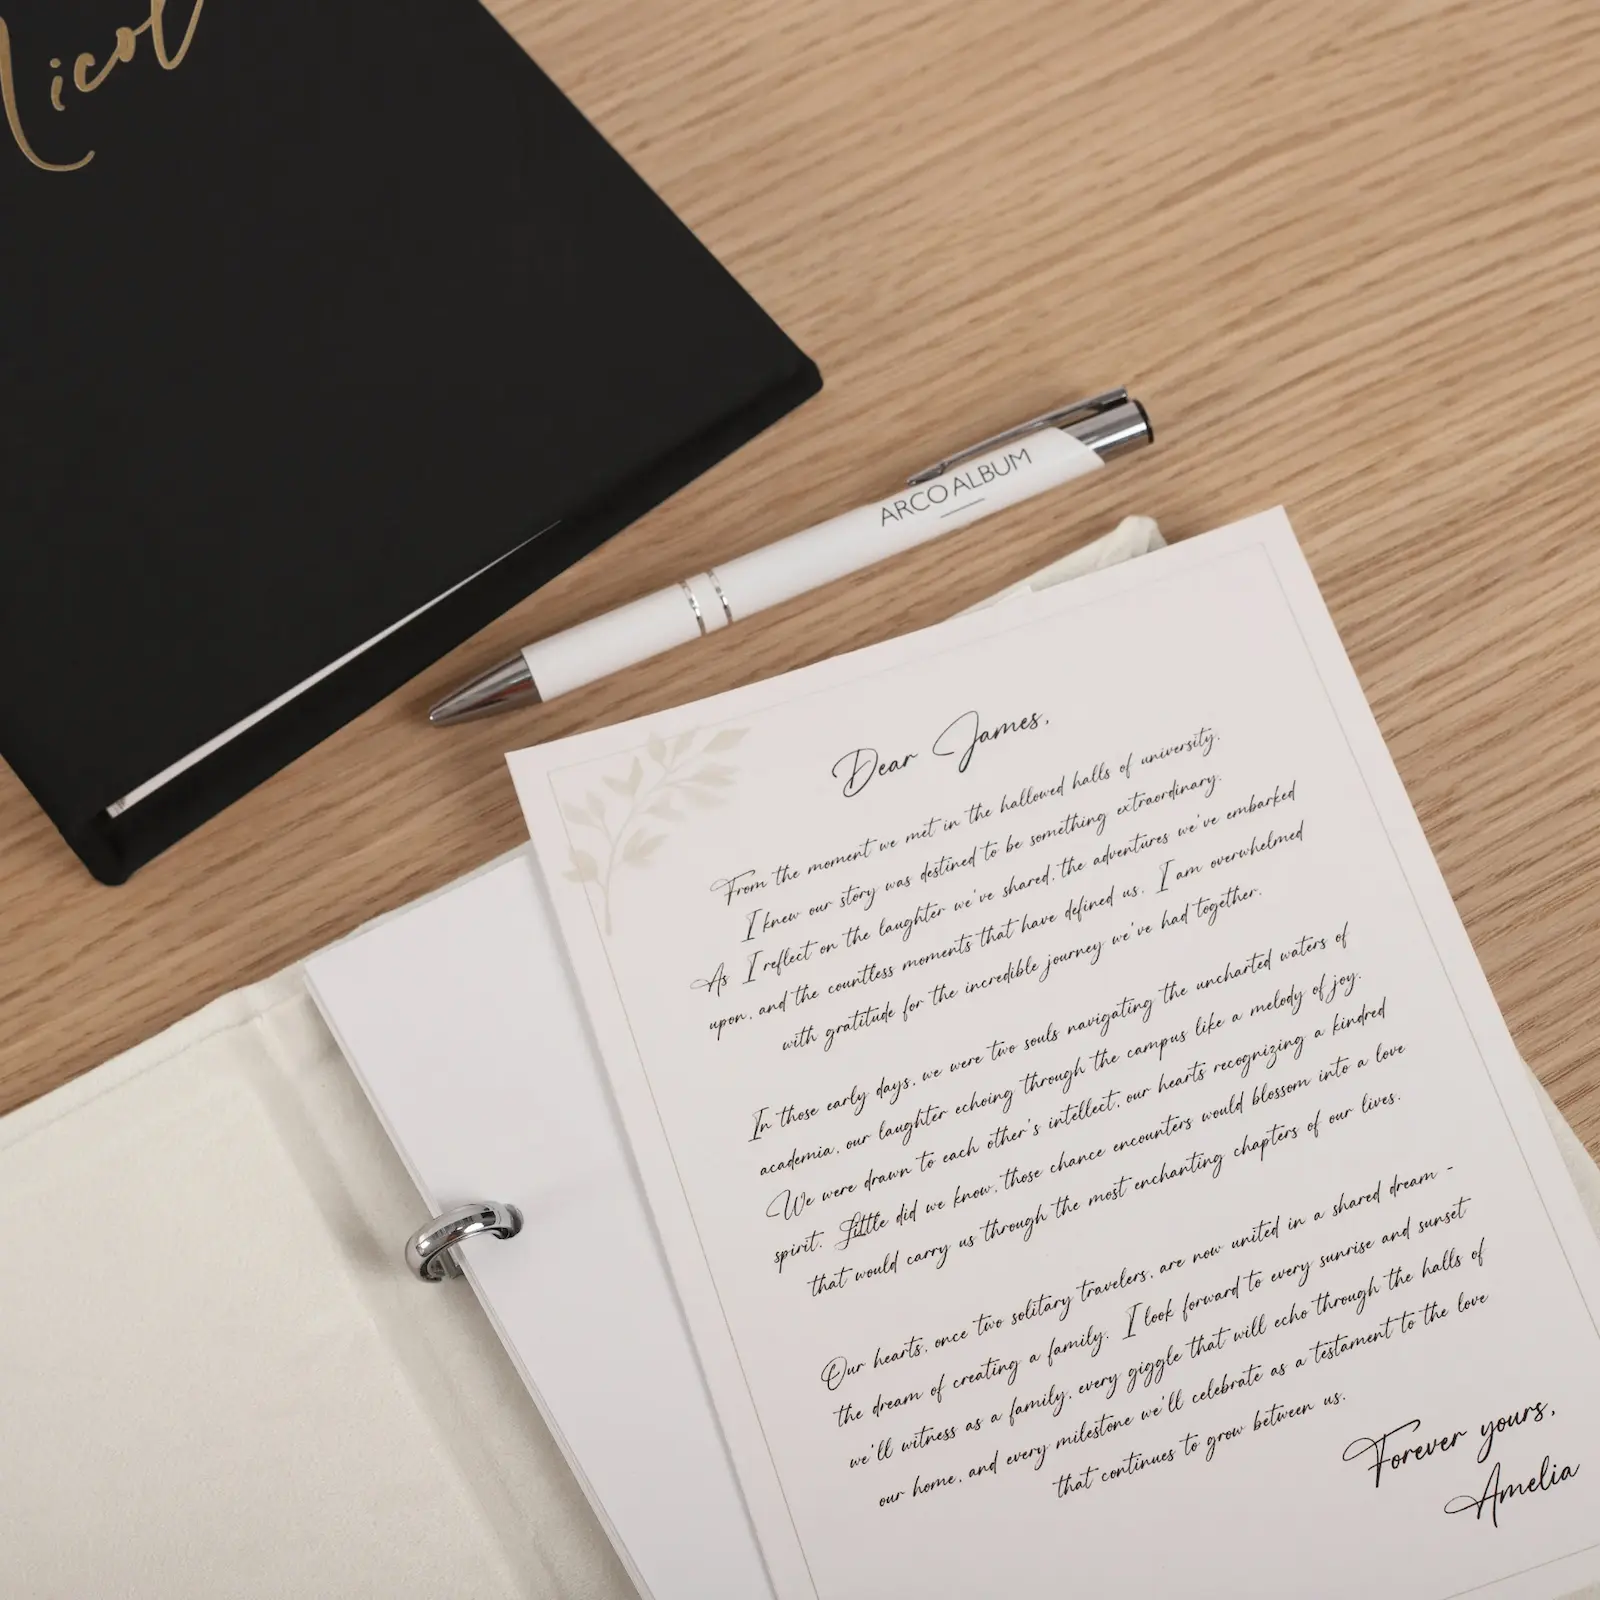 Nicol
ARCO ALBUM
Dear James,
From the moment we met in the hallowed halls of university,
I knew our story was destined to be something extraordinary.
As I reflect on the laughter we've shared, the adventures we've embarked
upon, and the countless moments that have defined us, I am overwhelmed
with gratitude for the incredible journey we've had together.
In those early days, we were two souls navigating the uncharted waters of
academia, our laughter echoing through the campus like a melody of joy.
We were drawn to each other's intellect, our hearts recognizing a kindred
spirit. Little did we know, those chance encounters would blossom into a love
that would carry us through the most enchanting chapters of our lives.
Our hearts, once two solitary travelers, are now united in a shared dream -
the dream of creating a family. I look forward to every sunrise and sunset
we'll witness as a family, every giggle that will echo through the halls of
our home, and every milestone we'll celebrate as a testament to the love
that continues to grow between us.
Forever yours,
Amelia